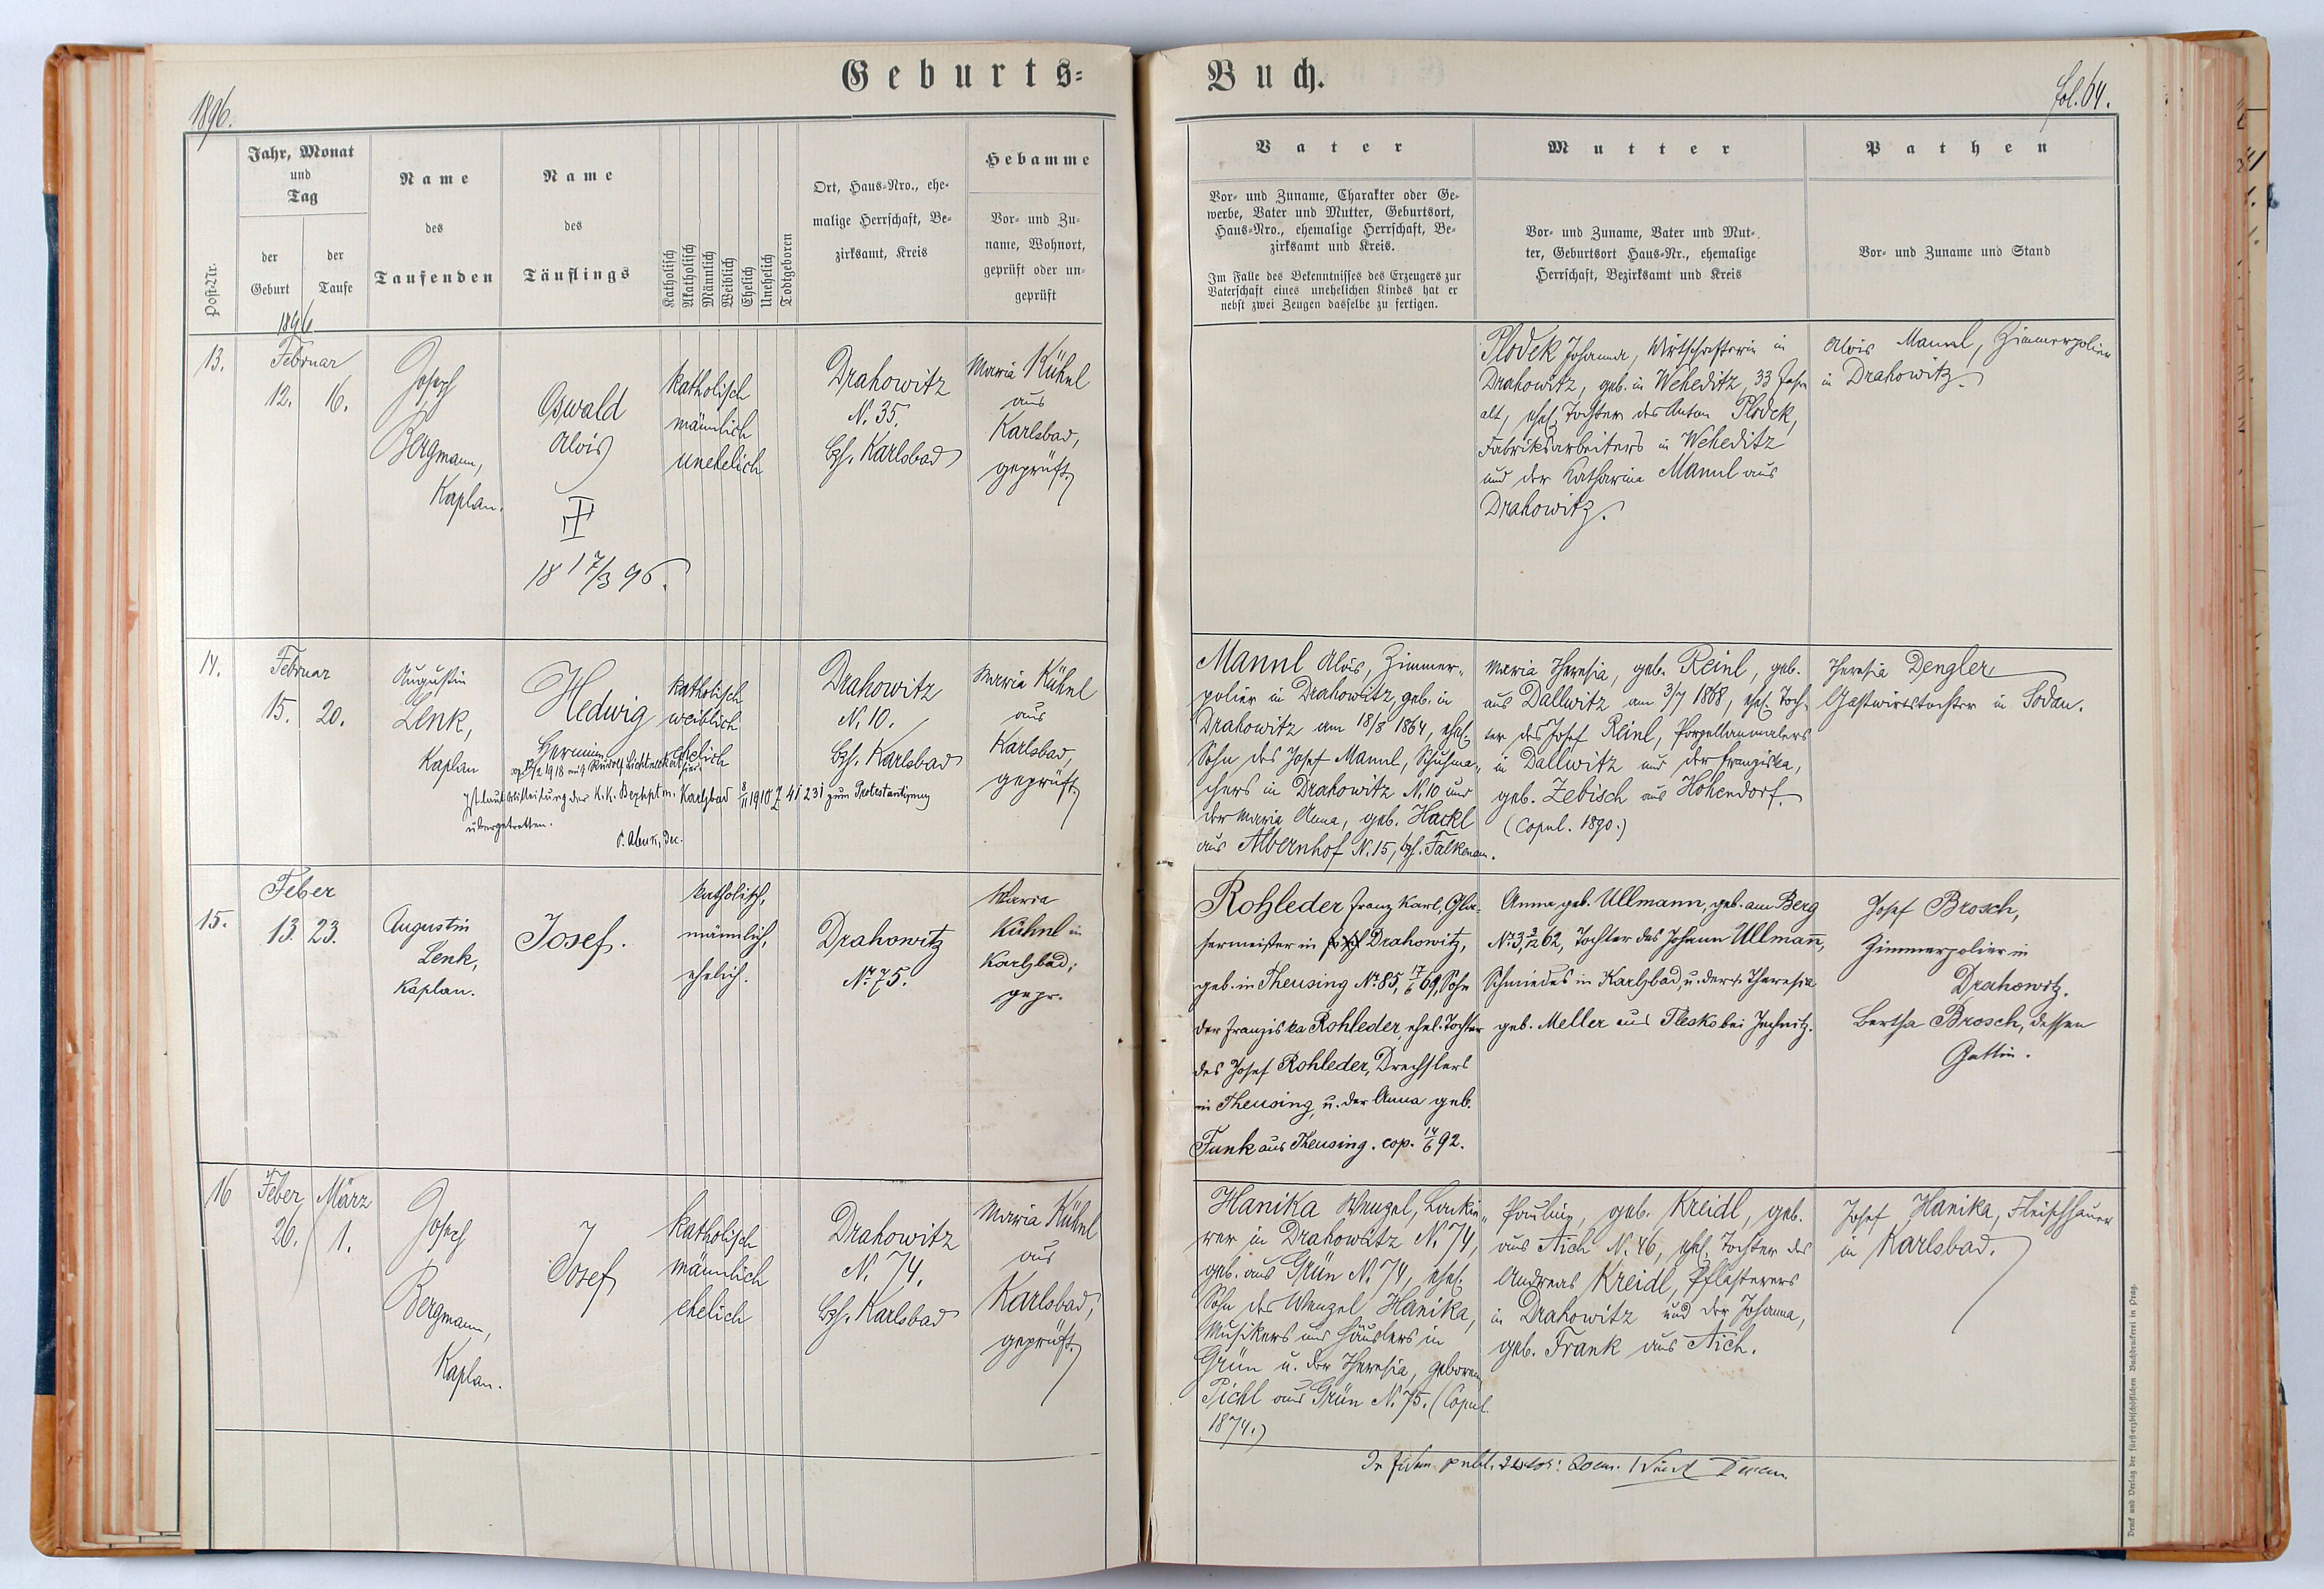 Geburts-
Buch.
1896.
fol. 64.
Post-Nr.
Jahr, Monat
und
Tag
der
Geburt
der
Taufe
Name
des
Taufenden
Name
des
Täuflings
Katholisch
Akatholisch
Männlich
Weiblich
Ehelich
Unehelich
Todtgeboren
Ort, Haus-Nro., ehe-
malige Herrschaft, Be-
zirksamt, Kreis
Hebamme
Vor- und Zu-
name, Wohnort,
geprüft oder un-
geprüft
Vater
Vor- und Zuname, Charakter oder Ge-
werbe, Vater und Mutter, Geburtsort,
Haus-Nro., ehemalige Herrschaft, Be-
zirksamt und Kreis.
Im Falle des Bekenntnisses des Erzeugers zur
Vaterschaft eines unehelichen Kindes hat er
nebst zwei Zeugen dasselbe zu fertigen.
Mutter
Vor- und Zuname, Vater und Mut-
ter, Geburtsort Haus-Nr., ehemalige
Herrschaft, Bezirksamt und Kreis
Pathen
Vor- und Zuname und Stand
1896
13.
Februar
12. 16.
Josef
Bergmann,
Kaplan.
Oswald
Alois
18 17/3 96.
katholisch
männlich
unehelich
Drahowitz
N. 35.
Bzh. Karlsbad
Maria Kühnl
aus
Karlsbad,
geprüft.
Plodek Johanna, Wirtschafterin in
Drahowitz, geb. in Weheditz, 33 Jahre
alt, ehel. Tochter des Anton Plodek,
Fabriksarbeiters in Weheditz
und der Katharina Mannl aus
Drahowitz.
Alois Mannl, Zimmerpolier
in Drahowitz.
14.
Februar
15. 20.
Augustin
Lenk,
Kaplan
Hedwig
Hermine
cop. 1918 mit Rudolf
Ist laut Mitteilung der k.k. Bezhptm. Karlsbad 8/11 1910 Z 41231 zum Protestantismus
übergetreten.
katholisch
weiblich
ehelich
Drahowitz
N. 10.
Bzh. Karlsbad
Maria Kühnl
aus
Karlsbad,
geprüft.
Mannl Alois, Zimmer-
polier in Drahowitz, geb. in
Drahowitz am 18/8 1864, ehel.
Sohn des Josef Mannl, Schuhma-
chers in Drahowitz N. 10 und
der Maria Anna, geb. Hackl
aus Albernhof N. 15, bzh. Falkenau.
Maria Theresia, geb. Reinl, geb.
aus Dallwitz am 3/7 1868, ehel. Toch-
ter des Josef Reinl, Porzellanmalers
in Dallwitz und der Franziska,
geb. Zebisch aus Höhendorf.
(Copul. 1890.)
Theresia Dengler,
Gastwirtstochter in Sodau.
15.
Feber
13. 23.
Augustin
Lenk,
Kaplan.
Josef.
katholisch,
männlich,
ehelich.
Drahowitz
Nr. 75.
Maria
Kühnl in
Karlsbad;
gepr.
Rohleder Franz Karl, Gla-
sermeister in Drahowitz,
geb. in Theusing Nr. 85, 17/6 69, Sohn
der Franziska Rohleder, ehel. Tochter
des Josef Rohleder, Drechslers
in Theusing, u. der Anna geb.
Funk aus Theusing. cop. 14/6 92.
Anna geb. Ullmann, geb. am Berg
Nr. 3, 62, Tochter des Johann Ullmann,
Schmiedes in Karlsbad, u. der Theresia
geb. Meller aus Flesko bei Jechnitz.
Josef Brosch,
Zimmerpolier in
Drahowitz.
Bertha Brosch, dessen
Gattin.
16
Feber März
26. 1.
Josef
Bergmann,
Kaplan.
Josef
katholisch
männlich
ehelich
Drahowitz
N. 74.
Bzh. Karlsbad
Maria Kühnl
aus
Karlsbad,
geprüft.
Hanika Wenzel, Lackie-
rer in Drahowitz N. 74,
geb. aus Grün N. 74, ehel.
Sohn des Wenzel Hanika,
Musikers und Häuslers in
Grün u. der Theresia, geboren
Pichl aus Grün N. 75. (Copul.
1874.)
Pauline, geb. Kreidl, geb.
aus Aich N. 46, ehel. Tochter des
Andreas Kreidl, Pflasterers
in Drahowitz und der Johanna,
geb. Frank aus Aich.
Josef Hanika, Fleischhauer
in Karlsbad.
Druck und Verlag der fürsterzbischöflichen Buchdruckerei in Prag.